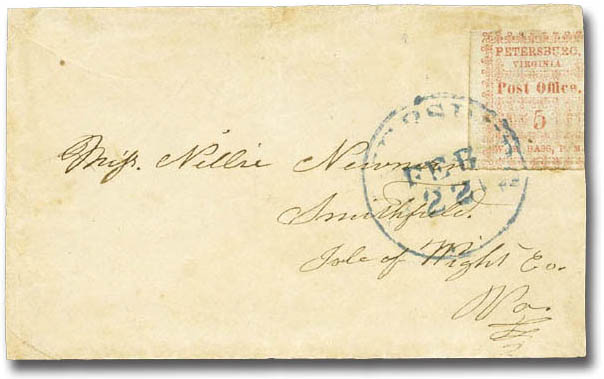 PETERSBURG,
VIRGINIA
Post Office.
5
FEB
22
Miss. Nellie
Smithfield.
Isle of Wight Co.
Va.